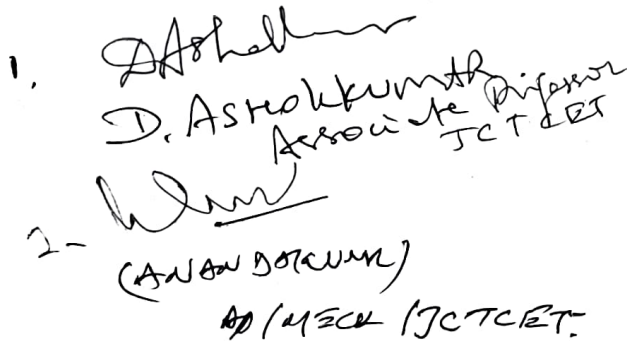 1. DAshokkumar
D. ASHOKKUMAR
Associate Professor
JCTCET
2-
(ANANDAKUMAR)
AP/MECH/JCTCET.